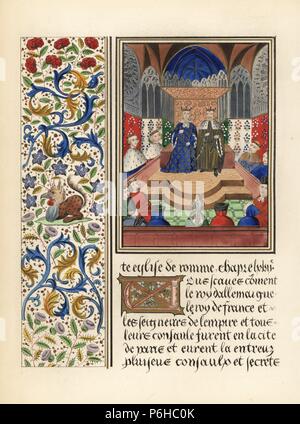 te eglise de romme. chapr e lv by
ous scaues cõment
le roy dallemaigne
le roy de france et
les seigneures de lempire et tous
leurs consaulx furent en la cite
de paris et eurent la entreux
pluiseurs consaulx et secrets
alamy
Image ID: P6HC0K
www.alamy.com